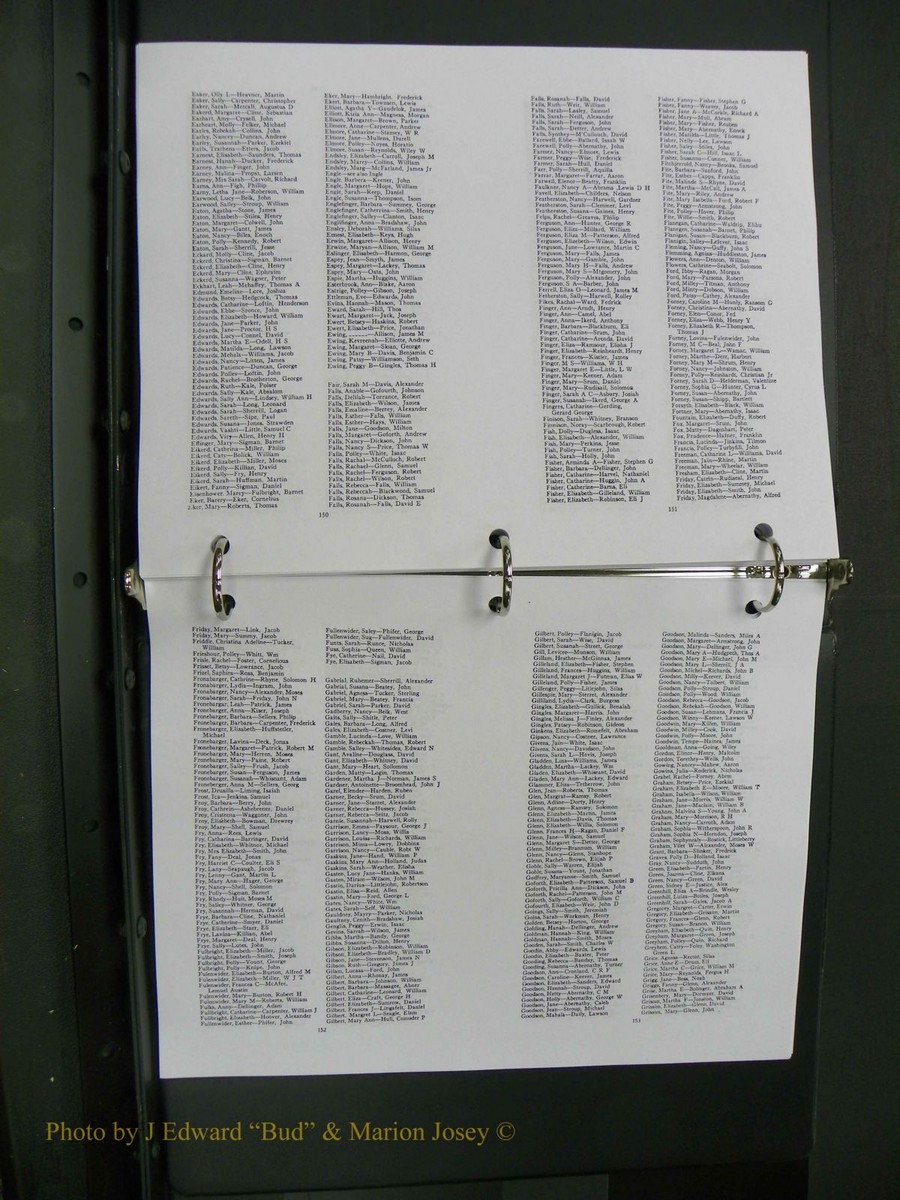 Esker, Olly L—Heavner, Martin
Esker, Sally—Carpenter, Christopher
Eaker, Sarah—Metcalf, Augustus D
Eakerd, Margaret—Cline, Sebastian
Earhart, Amy—Crysell, John
Earheart, Molly—Felker, Michael
Earles, Rebekah—Collins, John
Earley, Nancy—Duncan, Andrew
Earley, Susannah—Parker, Ezekiel
Earls, Trathena—Errors, Jacob
Earnest, Elizabeth—Saunders, Thomas
Earnest, Hanah—Duckey, Frederick
Earney, Ann—Finger, John
Earney, Malina—Propst, Larson
Earney, Mrs Sarah—Correll, Richard
Earns, Ann—Figh, Phillip
Earny, Letha Jane—Roberson, William
Earwood, Lucy—Belk, John
Earwood, Salley—Strong, William
Eaton, Agatha—Stone, James
Eaton, Elizabeth—Stiles, Henry
Eaton, Margaret—Colwell, John
Eaton, Mary—Gant, James
Eaton, Nancy—Biles, Enoch
Eaton, Polly—Kennedy, Robert
Eaton, Sarah—Sherrill, Jesse
Eckard, Molly—Cline, Jacob
Eckard, Christina—Sigman, Barnet
Eckerd, Elizabeth—Cline, Henry
Eckerd, Mary—Cline, Ephraim
Eckerd, Susanna—Wagner, Peter
Eckhart, Leah—Mehaffey, Thomas A
Edmond, Emeline—Lore, Joshua
Edwards, Betsy—Hedgcock, Thomas
Edwards, Catharine—Loftin, Henderson
Edwards, Ebbe—Stamey, John
Edwards, Elizabeth—Howard, William
Edwards, Jane—Parker, John
Edwards, Jane—Proctor, H S
Edwards, Lucy—Connel, David
Edwards, Martha E—Odell, H S
Edwards, Matilda—Long, Lawson
Edwards, Mehala—Williams, Jacob
Edwards, Nancy—Lutes, James
Edwards, Patience—Duncan, George
Edwards, Polley—Loftin, John
Edwards, Rachel—Brotherton, George
Edwards, Ruth—Kale, Polser
Edwards, Sally—Kale, Absalom
Edwards, Sally Ann—Lindsey, William H
Edwards, Sarah—Long, Leonard
Edwards, Sarah—Sherrill, Logan
Edwards, Sarrith—Sipe, Paul
Edwards, Susana—Jones, Strawden
Edwards, Vashti—Little, Samuel C
Edwards, Viry—Allen, Henry H
Effinger, Mary—Sigman, Barnet
Eikerd, Cathrina—Miller, Philip
Eikerd, Caty—Bolick, William
Eikerd, Elizabeth—Miller, Moses
Eikerd, Polly—Killian, David
Eikerd, Sally—Fry, Henry
Eikerd, Sarah—Huffman, Martin
Eikert, Fanny—Sigman, Daniel
Eisenhower, Marcy—Fulbright, Barnet
Eker, Barery—Eker, Cornelius
Eker, Mary—Roberts, Thomas
150
Eker, Mary—Hambright, Frederick
Ekert, Barbara—Townsen, Lewis
Elliott, Agatha Y—Goudelok, James
Elliott, Kiziah Ann—Magness, Morgan
Ellison, Margaret—Brown, Parker
Elmore, Anne—Carpenter, Andrew
Elmore, Catharine—Stamey, W R
Elmore, Jane—Mullens, Durell
Elmore, Polley—Noyes, Horatio
Elmore, Susan—Reynolds, Wiley W
Endsley, Elizabeth—Carroll, Joseph M
Endsley, Mary—Collins, William
Endsley, Marg—McFarland, James Jr
Engle—see also Ingle
Engle, Barbara—Keener, John
Engle, Margaret—Hope, William
Engle, Sarah—Reep, Daniel
Engle, Susanna—Thompson, Isom
Englefinger, Barbara—Summey, George
Englefinger, Catherrina—Smith, Henry
Englefinger, Salley—Clinton, Isaac
Englfinger, Anna—Bradshaw, John
Ensley, Deborah—Williams, Silas
Ernest, Elizabeth—Keys, Hugh
Erwin, Margaret—Allison, Henry
Erwine, Maryan—Allison, William M
Eslinger, Elizabeth—Harmon, George
Espey, Jean—Smyth, James
Espey, Margaret—Lackey, Thomas
Espey, Mary—Oats, John
Espie, Martha—Huggins, William
Esterbrook, Ann—Blake, Aaron
Estrige, Polley—Gibson, Joseph
Ettleman, Eve—Edwards, John
Evins, Hannah—Mason, Thomas
Eward, Sarah—Hill, Thos
Ewart, Margaret—Jack, Joseph
Ewert, Betsey—Hoskins, Robert
Ewert, Elisabeth—Price, Jonathan
Ewing, ———Allison, James M
Ewing, Kevrennah—Elliotte, Andrew
Ewing, Margaret—Sloan, George
Ewing, Mary B—Davis, Benjamin C
Ewing, Patsy—Williamson, Seth
Ewing, Peggy B—Gingles, Thomas H
Fair, Sarah M—Davis, Alexander
Falls, Anable—Gofourth, Johnson
Falls, Delilah—Torrance, Robert
Falls, Elizabeth—Wilson, James
Falls, Emaline—Berrey, Alexander
Falls, Esther—Falls, William
Falls, Esther—Hays, William
Falls, Jane—Goodson, Milton
Falls, Margaret—Goforth, Andrew
Falls, Nancy—Dickson, John
Falls, Nancy S—Price, Thomas W
Falls, Polley—White, Isaac
Falls, Rachael—McCulloch, Robert
Falls, Rachael—Glenn, Samuel
Falls, Rachel—Ferguson, Robert
Falls, Rachel—Wilson, Robert
Falls, Rebecca—Falls, William
Falls, Rebeccah—Blackwood, Samuel
Falls, Rosana—Dickson, Thomas
Falls, Rosanah—Falls, David E
Falls, Rosanah—Falls, David
Falls, Ruth—Weir, William
Falls, Sarah—Lusley, Samuel
Falls, Sarah—Neill, Alexander
Falls, Sarah—Ferguson, John
Falls, Sarah—Detter, Andrew
Falls, Synthey—M'Cullouch, David
Farewell, Ebbe—Ballard, Isaih W
Farewell, Polly—Abernathy, John
Farmer, Nancy—Elmore, Lewis
Farmer, Peggy—Wise, Frederick
Farmer, Sarah—Hull, Daniel
Farr, Polly—Sherrill, Aquilla
Farrar, Margaret—Farrar, Aaron
Farwell, Elmer—Beatty, Franklin
Faulkner, Nancy A—Abrams, Lewis D H
Favell, Elizabeth—Childers, Nelson
Featherston, Nancy—Harwell, Gardner
Featherston, Sarah—Clemmer, Levi
Featherston, Susana—Gaines, Henry
Felps, Rachel—Graves, Philip
Ferguson, Ann—Hunter, George R
Ferguson, Eliza—Millard, William
Ferguson, Eliza M—Patterson, Alfred
Ferguson, Elizabeth—Wilson, Edwin
Ferguson, Jane—Lowrance, Martin C
Ferguson, Mary—Falls, James
Ferguson, Mary—Gamble, John
Ferguson, Mary H—Falls, Andrew
Ferguson, Mary S—Mtgomery, John
Ferguson, Polly—Alexander, John
Ferguson, S A—Barber, John
Ferrell, Eliza O—Leonard, James M
Fetherston, Sally—Harwell, Rolley
Fikes, Rachal—Ward, Fedrick
Finger, Ann—Arndt, Henry
Finger, Ann—Camel, Abel
Finger, Anna—Ikerd, Anthony
Finger, Barbara—Blackburn, Eli
Finger, Catharine—Srum, John
Finger, Catharine—Arends, David
Finger, Eliza—Ramsour, Elisha J
Finger, Elizabeth—Reinheardt, Henry
Finger, Frances—Kistler, James
Finger, M—Williams, W H
Finger, Margaret E—Little, L W
Finger, Mary—Keener, Adam
Finger, Mary—Srum, Daniel
Finger, Mary—Rudisail, Solomon
Finger, Sarah A C—Asbury, Josiah
Finger, Susanah—Ikerd, George A
Fingers, Catharine—Gerding, Gerard George
Finison, Sarah—Whitney, Branson
Finnison, Noray—Scarbrough, Robert
Fish, Dolly—Dugless, Isaac
Fish, Elizabeth—Alexander, William
Fish, Mary—Perkins, Jesse
Fish, Polley—Turner, John
Fish, Sarah—Holly, John
Fisher, Arminda A—Fisher, Stephen G
Fisher, Barbara—Dellinger, John
Fisher, Catharine—Harvel, Nathaniel
Fisher, Catharine—Huggin, John A
Fisher, Catherine—Barns, Eli
Fisher, Elizabeth—Gilleland, William
Fisher, Elizabeth—Robinson, Eli J
Fisher, Fanny—Fisher, Stephen G
Fisher, Fanny—Weaver, Jacob
Fisher, Jane A—McCorkle, Richard A
Fisher, Mary—Hull, Abram
Fisher, Mary—Fisher, Reuben
Fisher, Mary—Abernathy, Enoch
Fisher, Matilda—Little, Thomas J
Fisher, Nelly—Lee, Lawson
Fisher, Salley—Stiles, John
Fisher, Sarah C—Hill, Isaac L
Fisher, Susanna—Conner, William
Fite, Barbara—Sanford, John
Fite, Esther—Capps, Franklin
Fite, Malinda S—Rhyne, David
Fite, Martha—McCall, James A
Fite, Mary—Riley, Andrew
Fite, Mary Isabella—Ford, Robert F
Fite, Peggy—Armstrong, John
Fite, Polley—Hayes, Philip
Fite, Willie—Smith, Robert
Flanagan, Susan—Blackburn, Robert
Flanigan, Salley—Lefever, Isaac
Fleming, Nancy—Guffy, John S
Flowers, Ann—Denton, William
Flowers, Cathrina—Seabolt, Solomon
Ford, Ibby—Ragan, Morgan
Ford, Mary—Parsons, Robert
Ford, Milley—Titman, Anthony
Ford, Minty—Dobson, William
Ford, Patsy—Cathey, Alexander
Forney, Caroline M—Hooly, Ransom G
Forney, Christina—Abernathy, David
Forney, Elen—Conor, Fed
Forney, Eliza—Webb, Henry Y
Forney, Elizabeth R—Thompson, Thomas J
Forney, Lovina—Fulenwider, John
Forney, M C—Beal, John F
Forney, Margaret L—Wamac, William
Forney, Marthe—Derr, Harbert
Forney, Mary M—Shrum, Henry
Forney, Nancy—Johnston, William
Forney, Polly—Reinhardt, Christian Jr
Forney, Sarah D—Helderman, Valentine
Forney, Sophia G—Hunter, Cyrus L
Forney, Susan—Abernathy, John
Forney, Susan—Shipp, Bartlett
Forsyth, Elizabeth—Black, William
Fortner, Mary—Abernathy, Isaac
Fountain, Elizabeth—Duffy, Robert
Fox, Margaret—Srum, John
Fox, Mathy—Dagenhart, Peter
Fox, Prudence—Hafner, Franklin
Francis, Lucinda—Jinkins, Tilmon
Francis, Polley—Turbyfill, John
Freeman, Catharine L—Williams, David
Freeman, Jain—Rhine, Martin
Freeman, Mary—Wheeler, William
Fresham, Elizabeth—Cline, Martin
Friday, Catrin—Rudiseal, Henry
Friday, Elizabeth—Summey, Michael
Friday, Elizabeth—Smith, John
Friday, Magdalene—Abernathy, Alfred
151
Friday, Margaret—Link, Jacob
Friday, Mary—Summy, Jacob
Friddle, Christina Adeline—Tucker, William
Frieshour, Polley—Whitt, Wm
Frisle, Rachel—Foster, Cornelious
Frisset, Betsy—Lowrance, Jacob
Frizel, Saphira—Ross, Benjamin
Fronabarger, Catherine—Rhyne, Solomon H
Fronabarger, Lydia—Ingram, John
Fronabarger, Nancy—Alexander, Moses
Fronabarger, Sarah—Friday, John N
Fronebarger, Leah—Patrick, James
Fronebarger, Anna—Kiser, Joseph
Fronebarger, Barbara—Sellers, Philip
Fronebarger, Barbara—Carpenter, Frederick
Fronebarger, Elizabeth—Huffstetler, Michael
Fronebarger, Lavina—Deck, Jonas
Fronebarger, Margaret—Patrick, Robert M
Fronebarger, Mary—Herron, Moses
Fronebarger, Mary—Paine, Robert
Fronebarger, Salley—Froah, Jacob
Fronebarger, Susan—Ferguson, James
Fronebarger, Susanah—Whisnant, Adam
Froneberger, Anna—McSellers, Georg
Frost, Drusilla—Liming, Isaiah
Frost, Ica—Jenkins, Samuel
Froy, Barbara—Berry, John
Froy, Catherine—Ashebener, Daniel
Froy, Cristenna—Waggoner, John
Froy, Elizabeth—Bowman, Drewery
Froy, Mary—Shell, Samuel
Fry, Anna—Ross, Lewis
Fry, Catharine—Barringer, David
Fry, Elizabeth—Whitner, Michael
Fry, Mrs Elizabeth—Smith, John
Fry, Fany—Deal, Jonas
Fry, Harriet C—Coulter, Eli S
Fry, Lany—Seapaugh, Jacob
Fry, Leony—Gant, Martin L
Fry, Mary Ann—Hager, George
Fry, Nancy—Shell, Solomon
Fry, Polly—Sigman, Barnet
Fry, Rhody—Huit, Moses M
Fry, Salley—Whitner, George
Fry, Susannah—Herman, David
Frye, Barbara—Cline, Nathaniel
Frye, Catherine—Smyer, Daniel
Frye, Elizabeth—Starr, Eli
Frye, Lavina—Killian, Abel
Frye, Margaret—Deal, Henry
Frye, Sally—Lutes, John
Fulbright, Elizabeth—Miller, Jacob
Fulbright, Elizabeth—Smith, Joseph
Fulbright, Polly—Yount, George
Fulbright, Polly—Knipe, John
Fulenwider, Elizabeth—Burton, Alfred M
Fulenwider, Elizabeth—Miller, W J T
Fulenwider, Frances C—McAfee, Leonedi Austin
Fulenwider, Mary—Burton, Robert H
Fulenwider, Mary M—Roberts, William
Fulks, Anna—Dellinger, Adam
Fullbright, Catharine—Carpenter, William J
Fullbright, Elizabeth—Hoover, Alexander
Fullenwider, Esther—Phifer, John
152
Fullenwider, Saley—Phifer, George
Fullenwider, Sug—Fullenwider, David
Funta, Sarah—Rurce, Nicholas
Fuss, Sophia—Queen, William
Fye, Catherine—Nail, David
Fye, Elizabeth—Sigman, Jacob
Gabriel, Ruhemer—Sherrill, Alexander
Gabriel, Susana—Beatey, John
Gabriel, Agness—Tucker, Sterling
Gabriel, Mary—Beatey, Francis
Gabriel, Sarah—Parker, David
Gadberry, Nancy—Belk, West
Gaits, Sally—Shitle, Peter
Gales, Barbara—Long, Alfred
Gales, Elizabeth—Costner, Levi
Gamble, Lucinda—Love, William
Gamble, Rebekah—Thomas, Robert
Gamble, Salley—Whitesides, Edward N
Gant, Avaline—Douglass, David
Gant, Elizabeth—Whitney, David
Gant, Mary—Heart, Sollomon
Garden, Matty—Login, Thomas
Gardener, Martha J—Norman, James S
Gardner, Antoinette—Broomhead, John J
Garel, Elender—Harden, Ruben
Garner, Becky—Srum, David
Garner, Jane—Starret, Alexander
Garner, Rebecca—Hussey, Josiah
Garner, Rebecca—Seitz, Jacob
Garner, Susannah—Harwell, Rolly
Garrison, Emma—Paysour, George J
Garrison, Laney—Moss, Willis
Garrison, Louisa—Richards, William
Garrison, Mima—Lowry, Dobbins
Garrison, Nancy—Cauble, Robt W
Gaskins, Jane—Hand, William P
Gaskins, Mary Ann—Holland, Judas
Gaskins, Sarah—Weather, Elisha
Gaston, Lucy Jane—Hanks, William
Gaston, Miram—Wilson, John M
Gastin, Darius—Littlejohn, Robertson
Gastin, Elisa—Reid, Allen
Gastin, Mary—Ford, George L
Gates, Nancy—White, Wm
Gates, Sarah—Self, William
Gauldney, Mary—Parker, Nicholas
Gaultney, Cenith—Bradshaw, Josiah
Genglis, Peggy—Erwin, Isaac
Gevins, Sarah—Wilson, James
Gibbs, Martha—Bandy, George
Gibbs, Susanna—Dillon, Henry
Gibson, Elizabeth—Robinson, William
Gibson, Elizabeth—Bradley, William D
Gibson, Jane—Stevenson, James N
Gibson, Ruth—Gregory, Jonna J
Gilam, Lucasa—Ford, John
Gilbert, Anna—Rhoney, James
Gilbert, Barbara—Johnson, William
Gilbert, Barbara—Massagee, Abner
Gilbert, Catharine—Conrard, William
Gilbert, Eliza—Craft, George H
Gilbert, Elizabeth—Surrow, Daniel
Gilbert, Frances J—Lingafelt, Daniel
Gilbert, Margret L—Seagle, Elem
Gilbert, Mary Ann—Hull, Comoder P
Gilbert, Polley—Flanigin, Jacob
Gilbert, Sarah—Wise, David
Gilbert, Susanah—Street, George
Gill, Levicee—Munson, William
Gillam, Heather—McGinnas, James
Gilleland, Elizabeth—Fisher, Stephen
Gilleland, Frances—Huggins, William
Gilleland, Margaret J—Putman, Elias W
Gilleland, Polly—Fisher, James
Gillenger, Peggy—Littlejohn, Silas
Gillespie, Mary—Sterret, Alexander
Gilliland, Lydia—Clark, Burgess
Gingles, Elizabeth—Gullick, Benaiah
Gingles, Margaret—Harris, John
Gingles, Melissa J—Finley, Alexander
Gingles, Patsey—Robison, Gidson
Ginkens, Elizabeth—Romefelt, Abraham
Gipson, Nancy—Coshner, Lawrance
Givens, Jain—White, Isaac
Givens, Nancy—Davidson, John
Givens, Sarah L—Hovis, Joseph
Gladden, Liza—Williams, James
Gladden, Martha—Lackey, Wm
Gladen, Elizabeth—Whisenat, David
Gladen, Mary Ann—Lackey, Edward
Glameny, Elisa—Tethrerow, John
Glen, Jean—Roberts, Thomas
Glen, Margret—Ranny, Robert
Glenn, Adline—Dorty, Henry
Glenn, Agness—Ramsey, Solomon
Glenn, Elizabeth—Martin, James
Glenn, Elizabeth—Davis, Thomas
Glenn, Elizabeth—Willis, Solomon
Glenn, Frances H—Ragan, Daniel F
Glenn, Jane—Wilson, Samuel
Glenn, Margaret S—Detter, George
Glenn, Milley—Brannum, William
Glenn, Nancy—Glenn, Stanhope
Glenn, Rachel—Brown, Elijah P
Goble, Sally—Warren, Elijah
Goble, Susana—Yount, Jonathan
Godfrey, Maryanne—Smith, Samuel
Goforth, Elizabeth—Patterson, Samuel B
Goforth, Pricilla Ann—Dickson, John
Goforth, Rachel—Patterson, John M
Goforth, Sally—Goforth, William C
Gofourth, Elizabeth—Weir, John D
Goings, Sally—Smith, James
Goins, Sarah—Workman, Henry
Golden, Betsey—Huston, George
Golding, Hanah—Delinger, Andrew
Goldman, Hannah—King, William
Goldman, Hannah—Smith, Moses
Gooden, Sarah—Smith, Charles W
Goodin, Abby—Edwards, Lewis
Goodin, Elizabeth—Baxter, Peter
Gooding, Rebecca—Hamber, Thomas
Gooding, Susanna—Abernathy, Turner
Goodson, Ann—Cronland, C R F
Goodson, Caroline—Keever, James
Goodson, Elizabeth—Sanders, Edward
Goodson, Hannah—Stroup, David
Goodson, Hetty—Abernathy, C M
Goodson, Holly—Abernathy, George W
Goodson, Jane—Abernathy, Caleb
Goodson, Jean—Stroup, Moses
Goodson, Mahala—Daily, Lawson
Goodson, Malinda—Sanders, Miles A
Goodson, Margaret—Armstrong, John
Goodson, Mary—Dellinger, John G
Goodson, Mary A—Hedgpeth, Thos A
Goodson, Mary E—Michael, John M
Goodson, Mary L—Sherrill, J A
Goodson, Michel—Richards, John B
Goodson, Milly—Keever, David
Goodson, Nancy—Tolbert, William
Goodson, Polly—Stroup, Daniel
Goodson, Polly—Wood, William
Goodson, Rebecca—Goodson, Jacob
Goodson, Rebekah—Goodson, William
Goodson, Susan—Lehmans, Francis J
Goodson, Winny—Keener, Lawson W
Goodwin, Mary—Killen, William
Goodwin, Milley—Cook, David
Goodwin, Polly—Moore, John
Goodwin, Tempe—Haines, James
Gooldman, Anna—Going, Wiley
Gordon, Elinor—Henry, Malcolm
Gordon, Torethey—Welk, John
Gowing, Nancy—Mabre, Aaron
Gowins, Julia—Roderick, Nicholas
Grabel, Rachel—Forney, Abne
Graham, Betsey—Price, Ezekiel
Graham, Elizabeth E—Moore, William T
Graham, Isabella—Wilson, William
Graham, Jane—Morris, William W
Graham, Jane—Macklin, William B
Graham, Malvina S—Young, John A
Graham, Mary—Morrison, R H
Graham, Nancy—Carruth, Adam
Graham, Sophia—Witherspoon, John R
Graham, Sophia N—Herndon, Joseph
Graham, Sophyneah—Bostick, Littleberry
Graham, Violet W—Alexander, Moses W
Grant, Barbara—Slinker, Fredrick
Graves, Polly D—Holland, Isaac
Gray, Nancy—Suddoth, John
Green, Elizabeth—Furtin, Henry
Green, Joanna—Cline, Elkana
Green, Nancy—Green, David
Green, Sidney E—Justice, Alex
Greenhill, Eliza A—Brindle, Wesley
Greenhill, Luiza—Boiles, Joseph
Greenhill, Sarah—Gales, Jacob A
Gregorey, Margaret—Carter, Erwin
Gregory, Elizabeth—Grissim, Martin
Gregory, Frances—Glenn, Robert
Gregory, Susan—Branon, William
Greyham, Elizabeth—Quin, Henry
Greyham, Margaret—Green, Joseph
Greyham, Polley—Quin, Richard
Greyhen, Caity—Foley, Washington Green L
Grice, Agness—Kerter, Silas
Grice, Anne E—Drum, Eli
Grice, Martha C—Grice, William M
Grice, Mary—Reynolds, Fergus H
Griffin, Jane—Boss, Noah
Griggs, Fanny—Glenn, Alexander
Grise, Martha E—Bolinger, Abraham A
Grissom, Martha F—Jonston, William
Grissim, Elizabeth—Glenn, David
Grissim, Mary—Glenn, John
153
Photo by J Edward “Bud” & Marion Josey ©